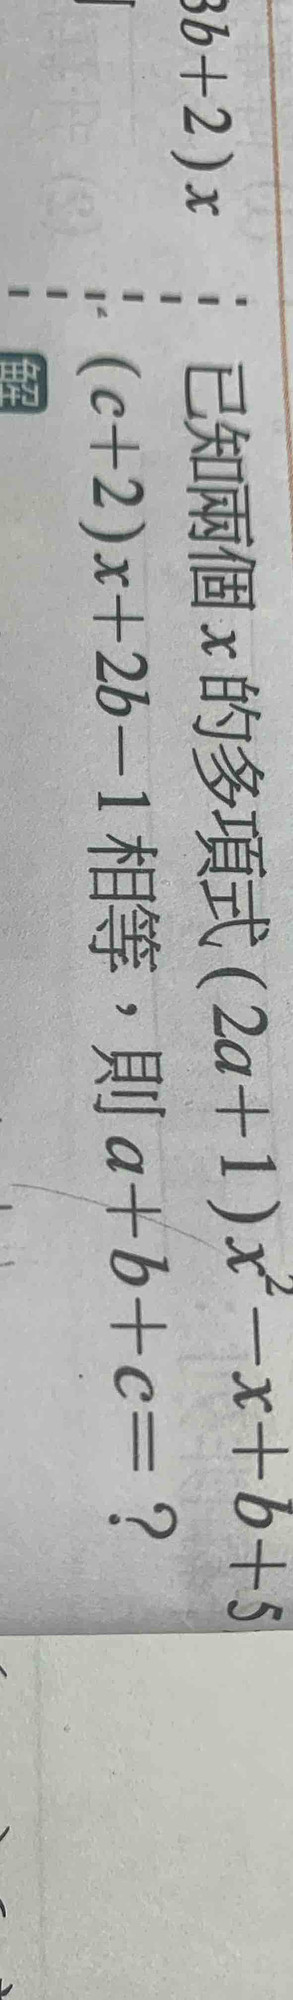 3b+2)x
已知兩個x的多項式(2a+1)x²-x+b+5
(c+2)x+2b-1相等，則a+b+c=？
解